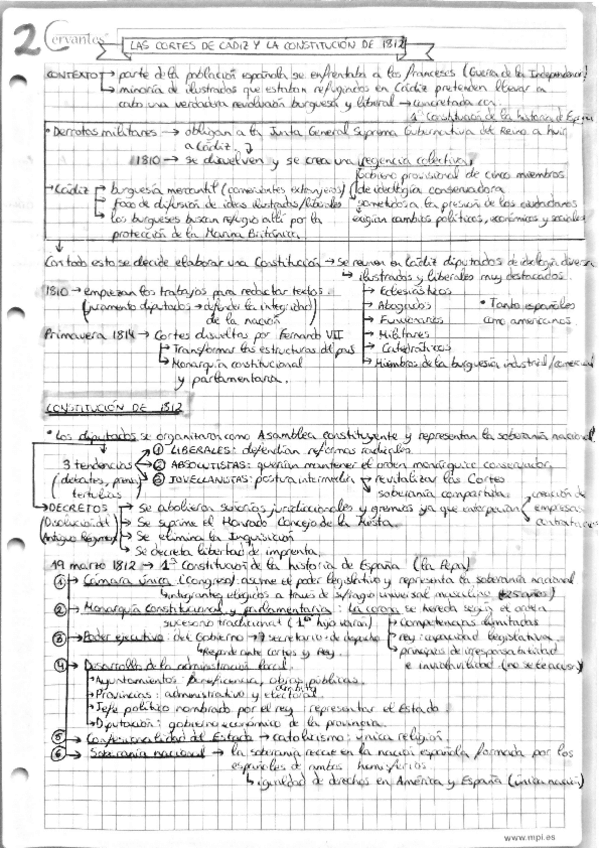 2 Cervantes
LAS CORTES DE CÁDIZ Y LA CONSTITUCIÓN DE 1812
CONTEXTO → parte de la población española se enfrentaba a los franceses (Guerra de la Independencia)
→ minoría de ilustrados que estaban refugiados en Cádiz pretenden llevar a
cabo una verdadera revolución burguesa y liberal → concretada con
1ª Constitución de la historia de España
• Derrotas militares → obligan a la Junta General Suprema Gubernativa del Reino a huir
a Cádiz
1810 → se disuelven y se crea una regencia colectiva
gobierno provisional de cinco miembros
→ Cádiz → burguesía mercantil (comerciantes extranjeros) de ideología conservadora
→ foco de difusión de ideas ilustradas/liberales sometidos a la presión de los ciudadanos
→ los burgueses buscan refugio allí por la exigían cambios políticos, económicos y sociales
protección de la Marina Británica
Con todo esto se decide elaborar una Constitución → Se reunen en Cádiz diputados de ideología diversa
↳ ilustrados y liberales muy destacados
1810 → empiezan los trabajos para redactar textos → Eclesiásticos
(juramento diputados → defender la integridad → Abogados • Tanto españoles
de la nación) → Funcionarios como americanos
Primavera 1814 → Cortes disueltas por Fernando VII → Militares
↳ Transformar las estructuras del país → Catedráticos
↳ Monarquía constitucional → Miembros de la burguesía industrial/comercial
y parlamentaria.
CONSTITUCIÓN DE 1812
• Los diputados se organizaron como Asamblea constituyente y representan la soberanía nacional
① LIBERALES: defendían reformas radicales
3 tendencias → ② ABSOLUTISTAS: querían mantener el orden monárquico conservador
(debates, prensa, ③ JOVELLANISTAS: postura intermedia → revitalizar las Cortes
tertulias) soberanía compartida
→ DECRETOS → Se abolieron señoríos jurídiccionales y gremios ya que creación de
(Disolución del → Se suprime el Honrado Concejo de la Mesta. empresas
Antiguo Régimen) → Se elimina la Inquisición
→ Se decreta libertad de imprenta.
19 marzo 1812 → 1ª Constitución de la historia de España (la Pepa)
① → Cámara única (Congreso) asume el poder legislativo y representa la soberanía nacional
↳ integrantes elegidos a través de sufragio universal masculino (+25 años)
② → Monarquía constitucional y parlamentaria: la corona se hereda según el orden
sucesorio tradicional (1er hijo varón) → Competencias limitadas
③ → Poder ejecutivo: del Gobierno → 7 secretarios de despacho → rey: capacidad legislativa
↳ Responde ante Cortes y Rey. → principios de irresponsabilidad
④ → Desarrollo de la administración local. e inviolavilidad (no se le acusa)
↳ Ayuntamientos: beneficencia, obras públicas.
↳ Provincias: ámbito administrativo y electoral
↳ Jefe político nombrado por el rey: representar el Estado
↳ Diputación: gobierno económico de la provincia.
⑤ → Confesionalidad del Estado → catolicismo: única religión.
⑥ → Soberanía nacional → la soberanía recae en la nación española formada por los
españoles de ambos hemisferios
↳ igualdad de derechos en América y España (única nación)
www.mpi.es